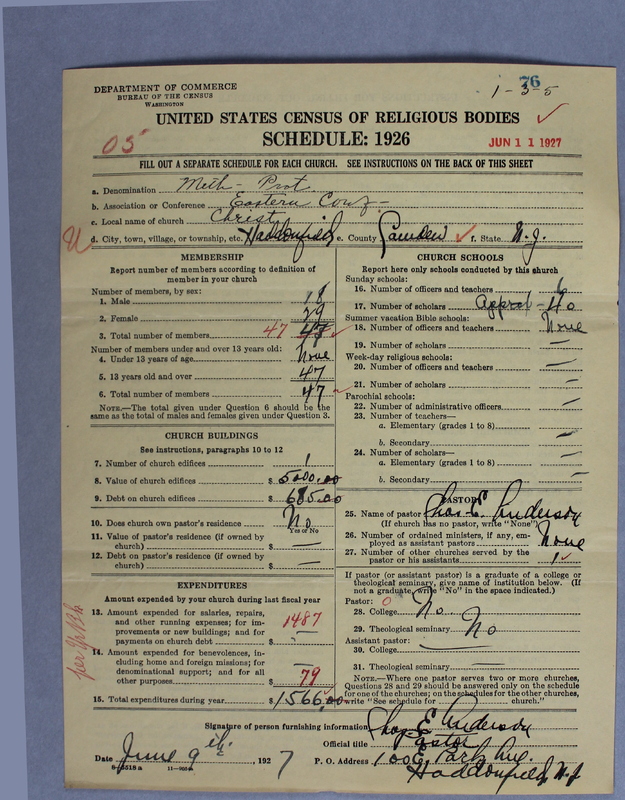 76
1-3-5
DEPARTMENT OF COMMERCE
BUREAU OF THE CENSUS
WASHINGTON
UNITED STATES CENSUS OF RELIGIOUS BODIES
SCHEDULE: 1926
05
JUN 11 1927
FILL OUT A SEPARATE SCHEDULE FOR EACH CHURCH. SEE INSTRUCTIONS ON THE BACK OF THIS SHEET
a. Denomination Meth - Prot.
b. Association or Conference Eastern Conf -
c. Local name of church Christ
U
d. City, town, village, or township, etc. Haddonfield e. County Camden f. State N.J.
MEMBERSHIP
Report number of members according to definition of
member in your church
Number of members, by sex:
1. Male 18
2. Female 29
3. Total number of members 47 47
Number of members under and over 13 years old:
4. Under 13 years of age None
5. 13 years old and over 47
6. Total number of members 47
NOTE.—The total given under Question 6 should be the
same as the total of males and females given under Question 3.
CHURCH BUILDINGS
See instructions, paragraphs 10 to 12
7. Number of church edifices 1
8. Value of church edifices $ 5000.00
9. Debt on church edifices $ 685.00
10. Does church own pastor's residence No
Yes or No
11. Value of pastor's residence (if owned by
church) $ —
12. Debt on pastor's residence (if owned by
church) $ —
EXPENDITURES
Amount expended by your church during last fiscal year
13. Amount expended for salaries, repairs,
and other running expenses; for im-
provements or new buildings; and for
payments on church debt $ 1487
14. Amount expended for benevolences, in-
cluding home and foreign missions; for
denominational support; and for all
other purposes $ 79
15. Total expenditures during year $ 1566.00
CHURCH SCHOOLS
Report here only schools conducted by this church
Sunday schools:
16. Number of officers and teachers 6
17. Number of scholars Approx - 40
Summer vacation Bible schools:
18. Number of officers and teachers None
19. Number of scholars —
Week-day religious schools:
20. Number of officers and teachers —
21. Number of scholars —
Parochial schools:
22. Number of administrative officers —
23. Number of teachers—
a. Elementary (grades 1 to 8) —
b. Secondary —
24. Number of scholars—
a. Elementary (grades 1 to 8) —
b. Secondary —
PASTOR
25. Name of pastor Chas. E. Anderson
(If church has no pastor, write "None")
26. Number of ordained ministers, if any, em-
ployed as assistant pastors None
27. Number of other churches served by the
pastor or his assistants 1
If pastor (or assistant pastor) is a graduate of a college or
theological seminary, give name of institution below. (If
not a graduate, write "No" in the space indicated.)
Pastor: 0
28. College No
29. Theological seminary No
Assistant pastor:
30. College —
31. Theological seminary —
NOTE.—Where one pastor serves two or more churches,
Questions 28 and 29 should be answered only on the schedule
for one of the churches; on the schedules for the other churches,
write "See schedule for church."
Signature of person furnishing information Chas E. Anderson
Official title Pastor
Date June 9th, 1927
P. O. Address 100 E. Park Ave.
Haddonfield, N.J
8-5518a